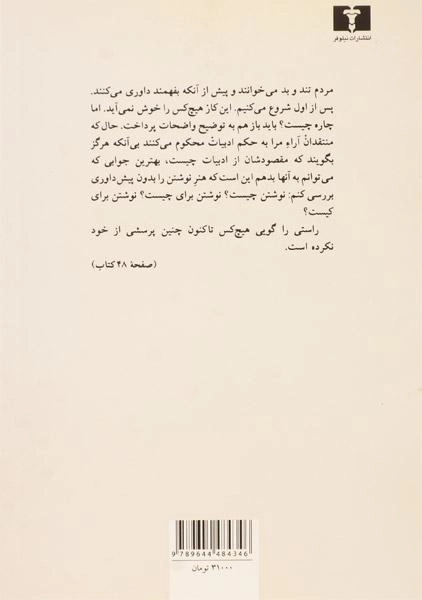 انتشارات نیلوفر
مردم تند و بد می‌خوانند و پیش از آنکه بفهمند داوری می‌کنند.
پس از اول شروع می‌کنیم. این کار هیچ‌کس را خوش نمی‌آید. اما
چاره چیست؟ باید باز هم به توضیح واضحات پرداخت. حال که
منتقدانْ آراءِ مرا به حکم ادبیاتْ محکوم می‌کنند بی‌آنکه هرگز
بگویند که مقصودشان از ادبیات چیست، بهترین جوابی که
می‌توانم به آنها بدهم این است که هنرِ نوشتن را بدون پیش‌داوری
بررسی کنم: نوشتن چیست؟ نوشتن برای چیست؟ نوشتن برای
کیست؟
راستی را گویی هیچ‌کس تاکنون چنین پرسشی از خود
نکرده است.
(صفحهٔ ۴۸ کتاب)
9 789644 484346
۳۱۰۰۰ تومان